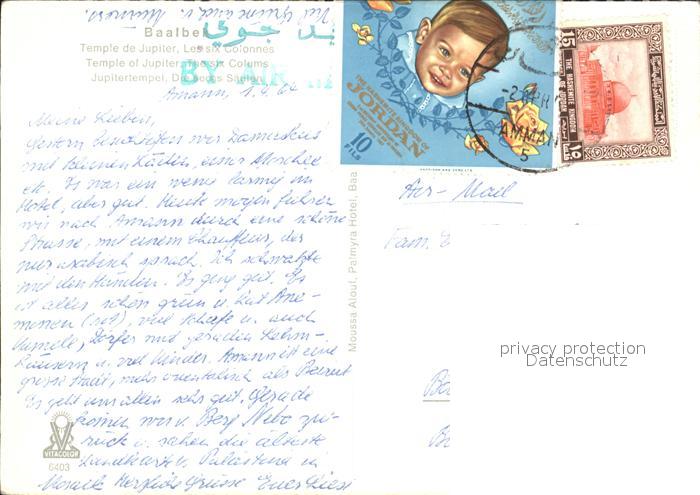 Viel Grünland u. Minnen.
Baalbe
بريد جوي
Temple de Jupiter, Les six Colonnes
Temple of Jupiter, The six Colums
Jupitertempel, Die sechs Säulen
BY AIR
Amann, 1.4.64
Meine Lieben,
Gestern besichtigten wir Damaskus
mit kleinen Läden, einer Moschee
etc. Es war ein wenig lärmig im
Hotel, aber gut. Heute morgen fuhren
wir nach Amann durch eine schöne
Strasse, mit einem Chauffeur, der
nur arabisch sprach. Ich schwatzte
mit den Händen. Es ging gut. Es
ist alles schön grün u. hat Ane-
monen (rot), viel Schafe u. auch
Kamele, Dörfer mit geraden Lehm-
häusern u. viel Kinder. Amann ist eine
grosse Stadt, mehr orientalisch als Beirut
Es geht uns allen sehr gut. Gerade
kamen wir v. Berg Nebo zu-
rück u. sahen die älteste
Landkarte v. Palästina in
Mosaik. Herzliche Grüsse Euer Liesi
VITACOLOR
6403
Moussa Alouf, Palmyra Hotel, Baa
THE HASHEMITE KINGDOM OF
JORDAN
10
FILS
15
FILS
THE HASHEMITE KINGDOM
OF JORDAN
١٥
AMMAN
5
Air-Mail
Fam. E
privacy protection
Datenschutz
Ba
B